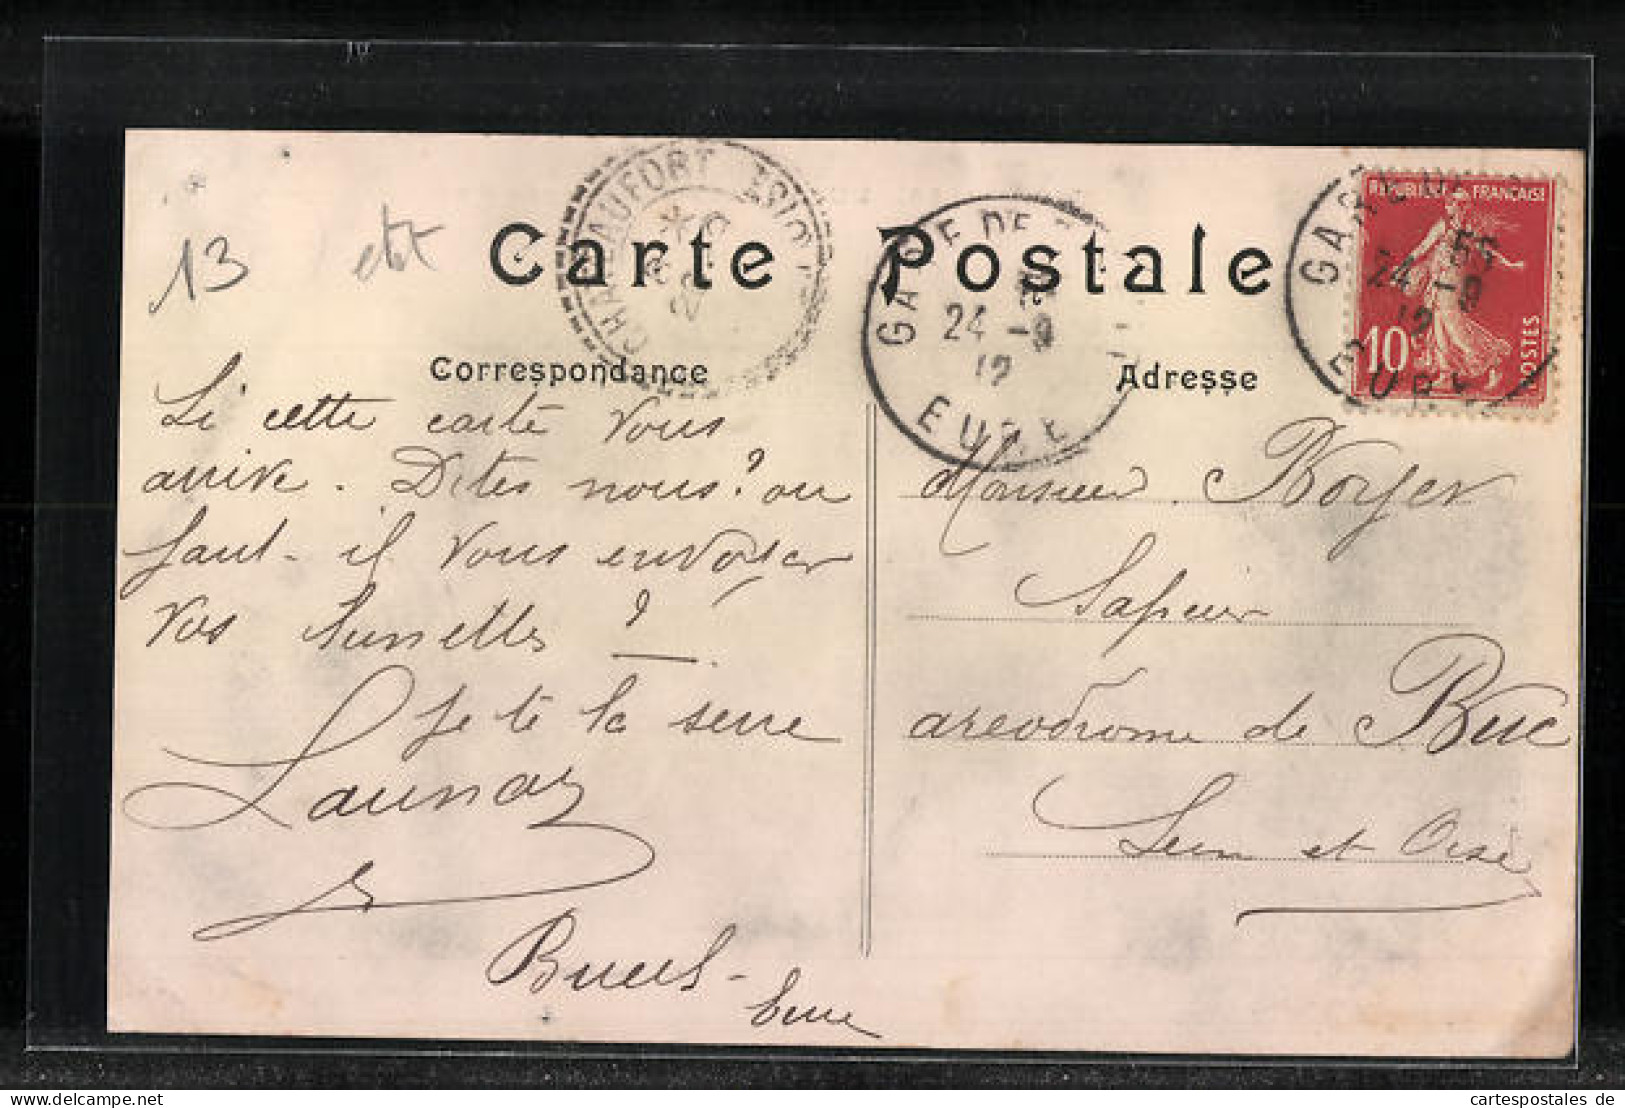 13
Carte Postale
Correspondance
Adresse
CHATEAUFORT
GARE DE
24 -9
12
EURE
GARE
24 -9
12
EURE
REPUBLIQUE FRANÇAISE
10c
POSTES
Si cette carte vous
arrive. Dites nous? ou
faut-il vous envoyer
vos lunettes?
Je te la serre
Launay
Bueil-
Eure
Monsieur Boyer
Sapeur
areodrome de Buc
Seine et Oise
delcampe.net
cartespostales de